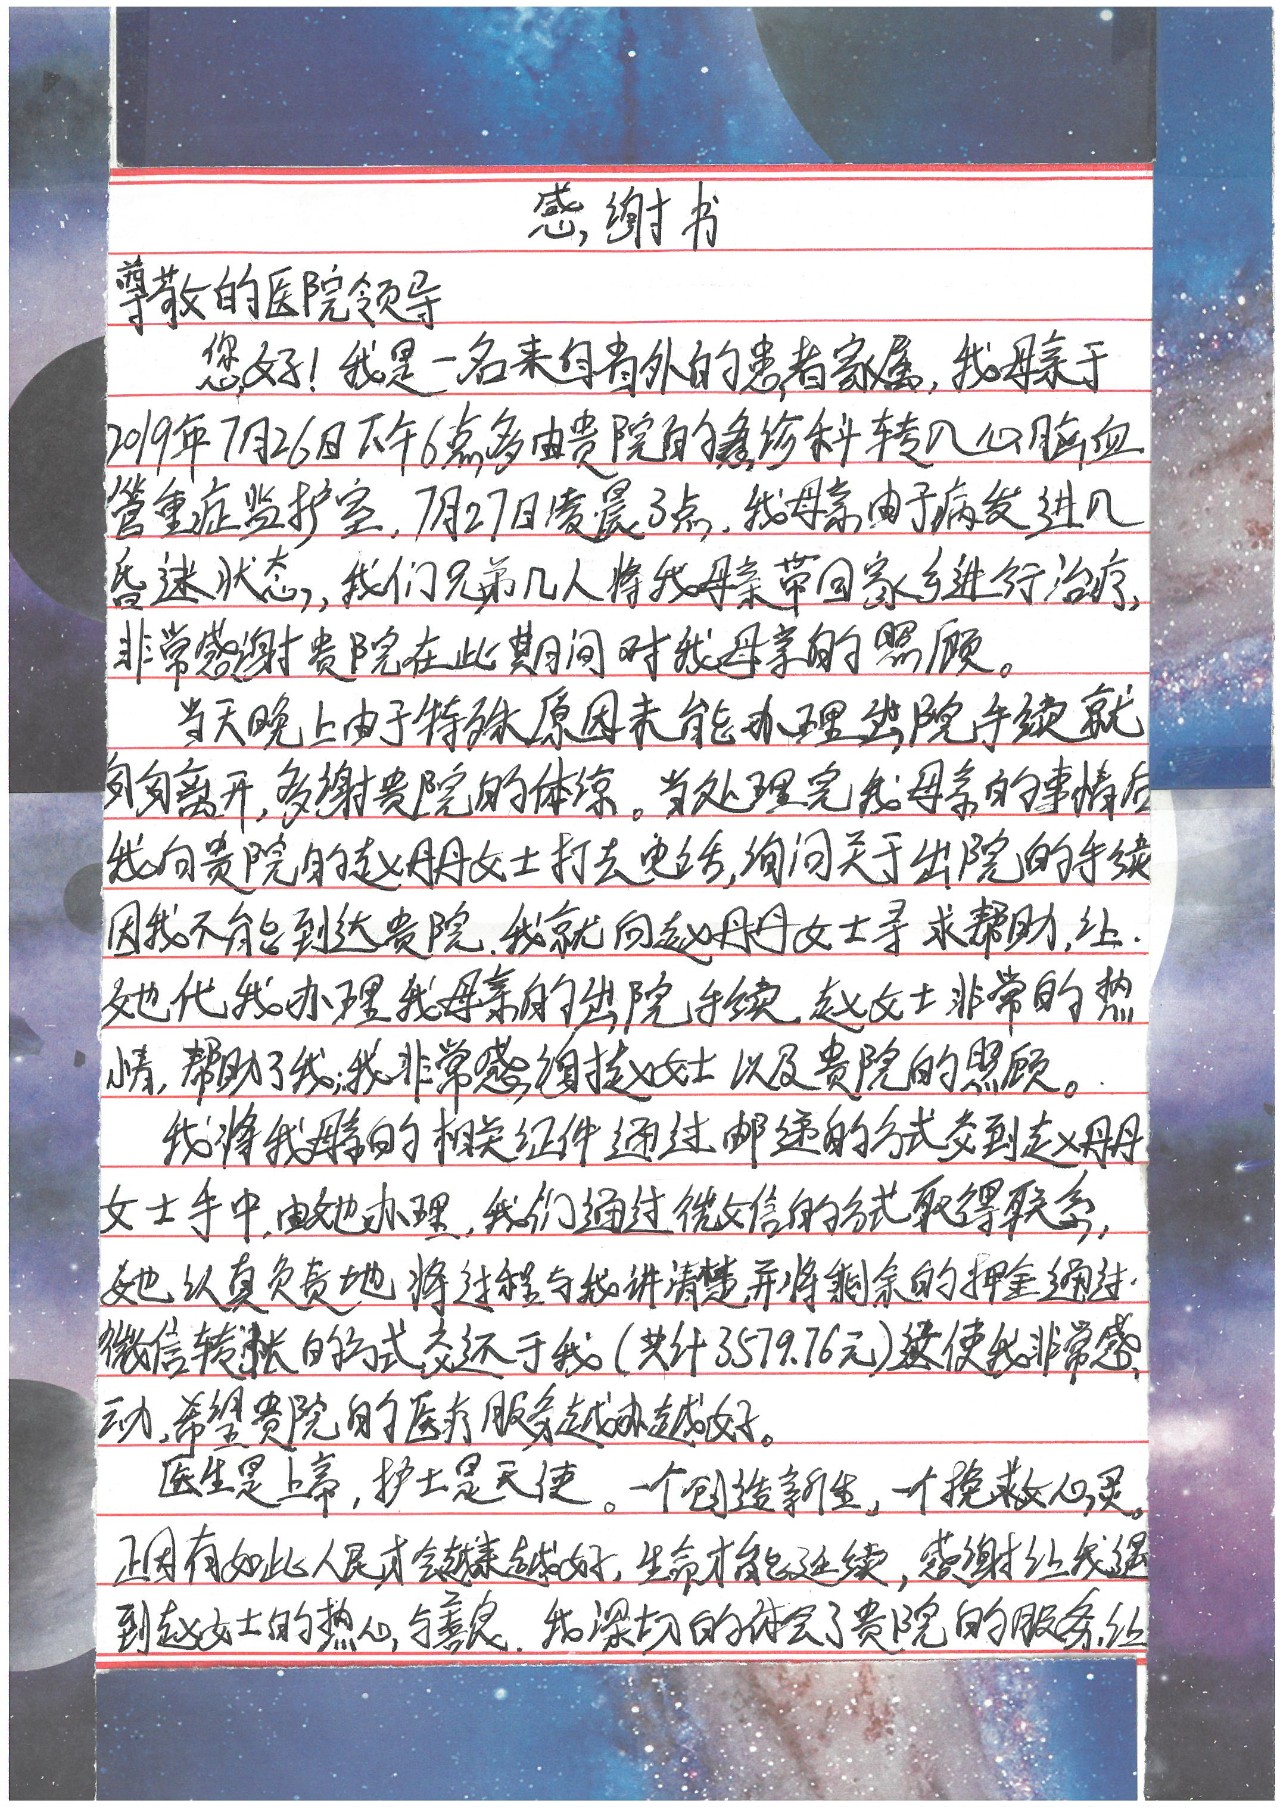 感谢书
尊敬的医院领导
您好！我是一名来自省外的患者家属，我母亲于
2019年7月26日下午6点多由贵院的急诊科转入心脑血
管重症监护室，7月27日凌晨3点，我母亲由于病发进入
昏迷状态，我们兄弟几人将我母亲带回家乡进行治疗，
非常感谢贵院在此期间对我母亲的照顾。
当天晚上由于特殊原因未能办理出院手续就
匆匆离开，多谢贵院的体谅。当处理完我母亲的事情后
我向贵院的赵丹丹女士打去电话，询问关于出院的手续
因我不能到达贵院，我就向赵丹丹女士寻求帮助，让
她代我办理我母亲的出院手续，赵女士非常的热
情，帮助了我，我非常感谢赵女士以及贵院的照顾。
我将我母亲的相关证件通过邮递的方式交到赵丹丹
女士手中，由她办理，我们通过微信的方式取得联系，
她认真负责地将过程与我讲清楚并将剩余的押金通过
微信转账的方式交还于我（共计3579.76元）这使我非常感
动，希望贵院的医疗服务越办越好。
医生是上帝，护士是天使。一个创造新生，一个挽救心灵。
正因有如此人民才会越来越好，生命才能延续，感谢让我遇
到赵女士的热心与善良，我深切的体会了贵院的服务，让